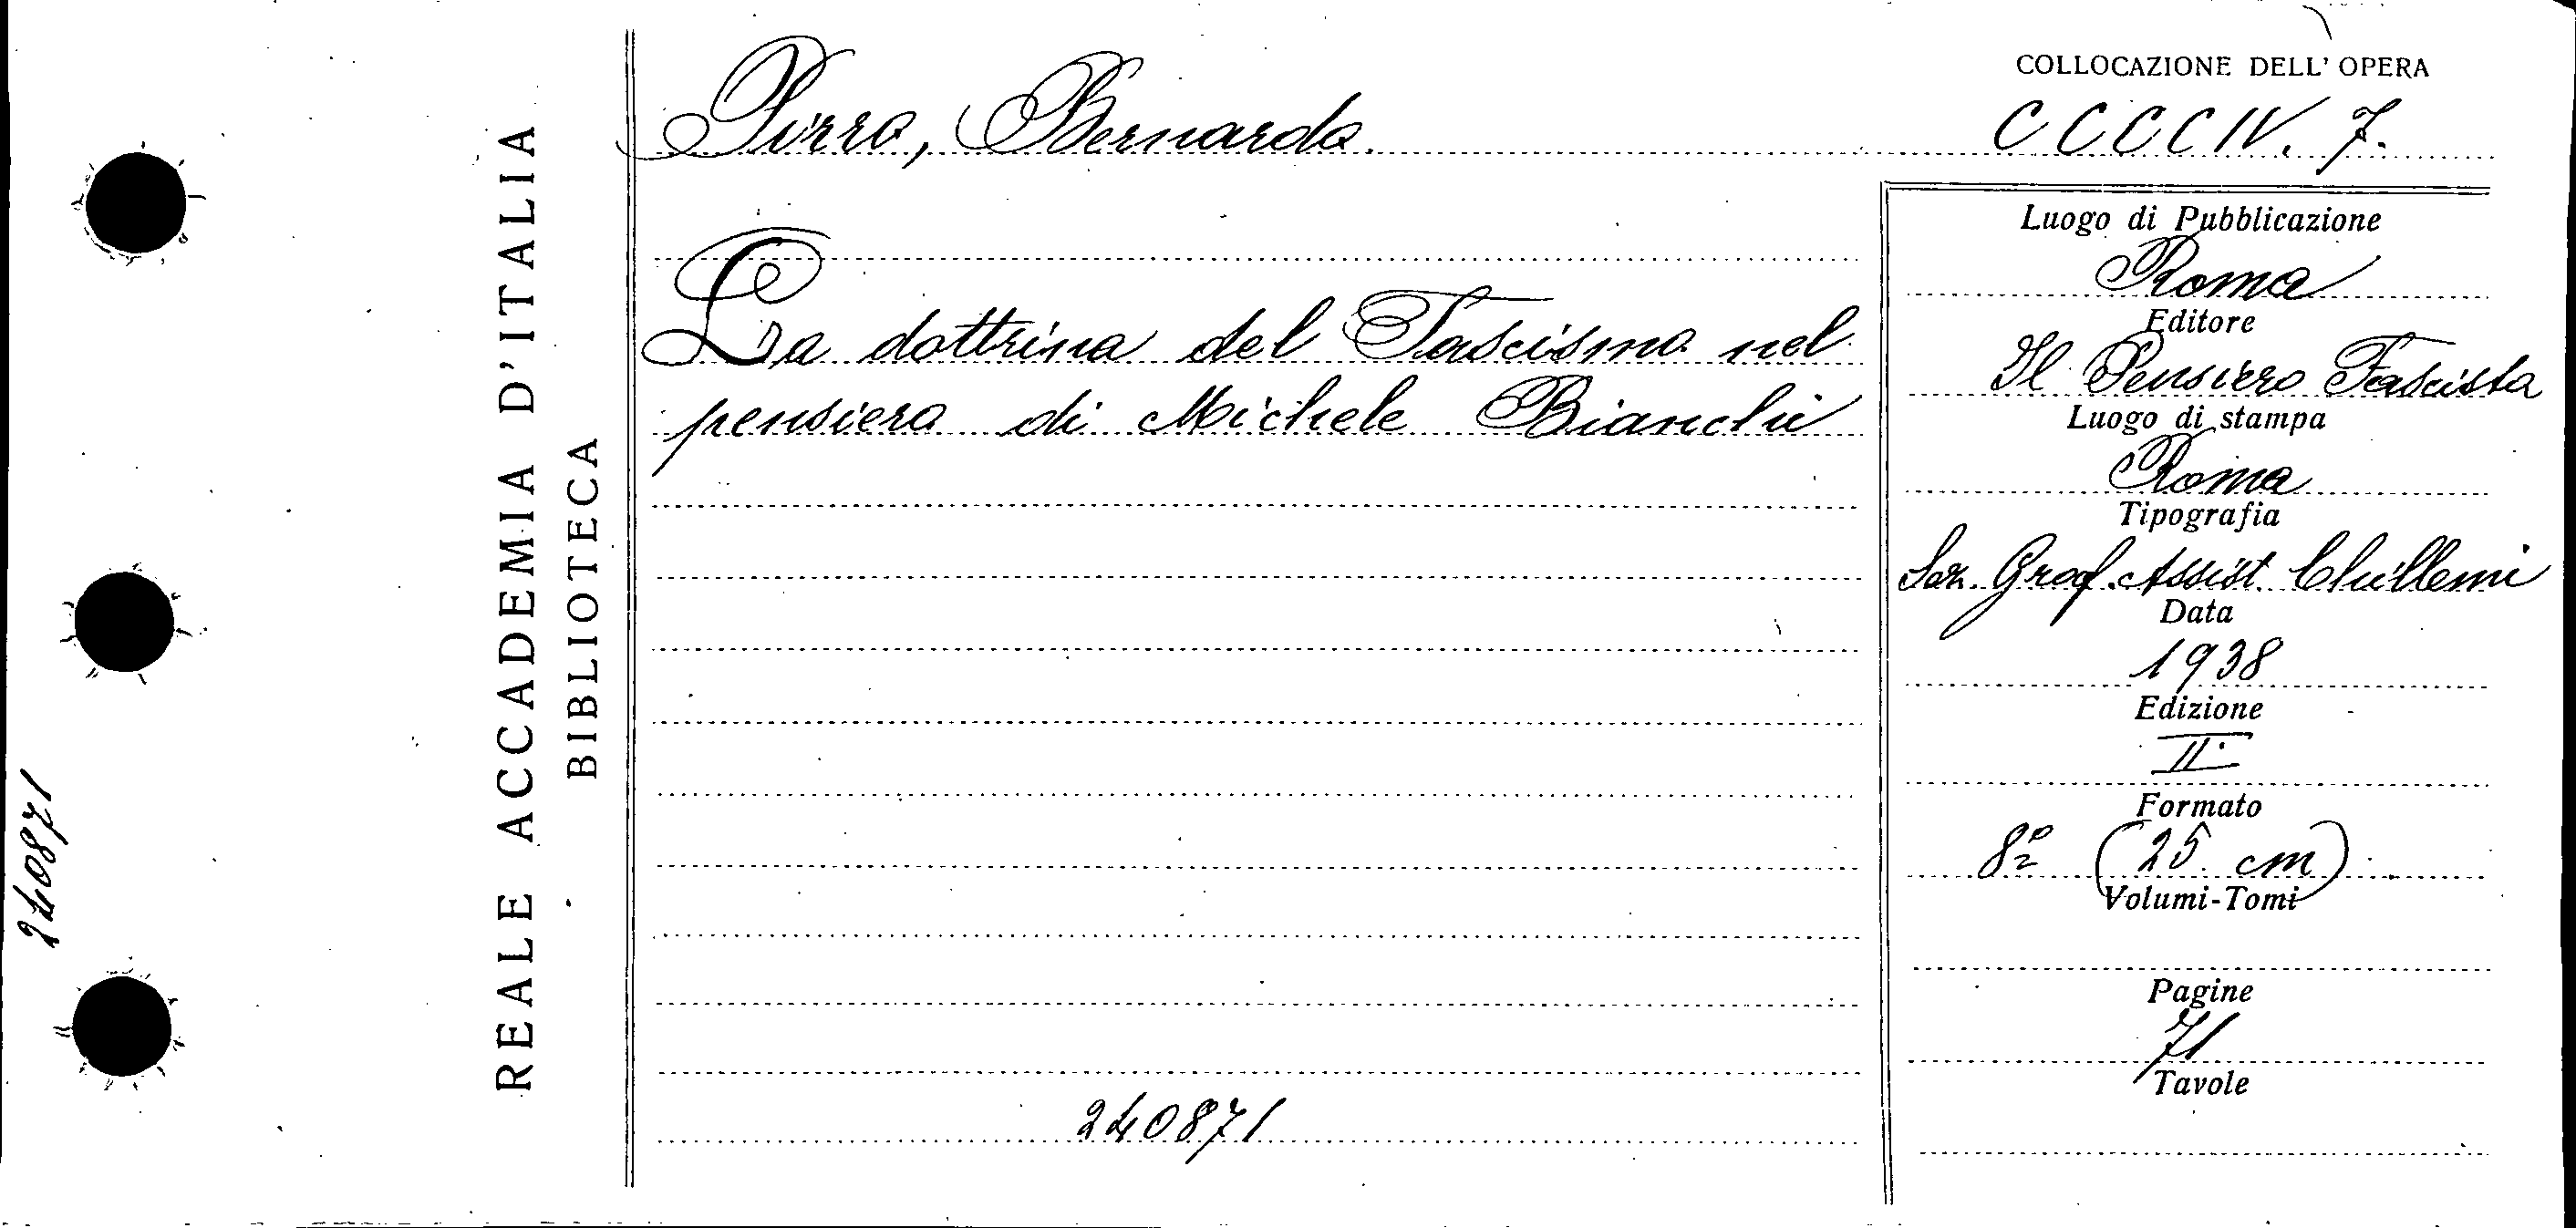 COLLOCAZIONE DELL' OPERA
Pirro, Bernardo.
CCCCIV. 7.
La dottrina del Fascismo nel
pensiero di Michele Bianchi
240871
Luogo di Pubblicazione
Roma
Editore
Il Pensiero Fascista
Luogo di stampa
Roma
Tipografia
Graf. Assist. Chillemi
Data
1938
Edizione
II.
Formato
8º (25 cm)
Volumi-Tomi
Pagine
71
Tavole
REALE ACCADEMIA D'ITALIA
BIBLIOTECA
240871